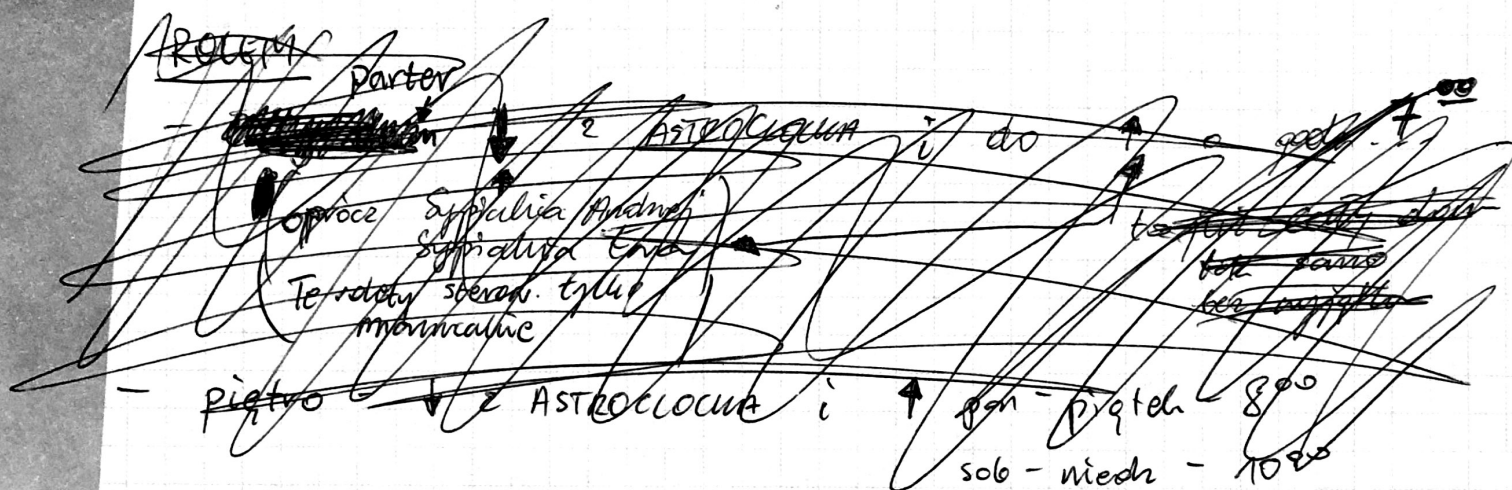 AROLEM
parter
↓ z ASTROCLOCKA i do ↑ o godz. 7 00
(oprócz Sypialnia Andrzej
Sypialnia Ewa)
(Te rolety sterow. tylko
manualnie)
też cały dom
tak samo
bez wyjątku
- piętro - ↓ z ASTROCLOCKA i ↑ pon - piątek 8 00
sob - niedz - 10 00